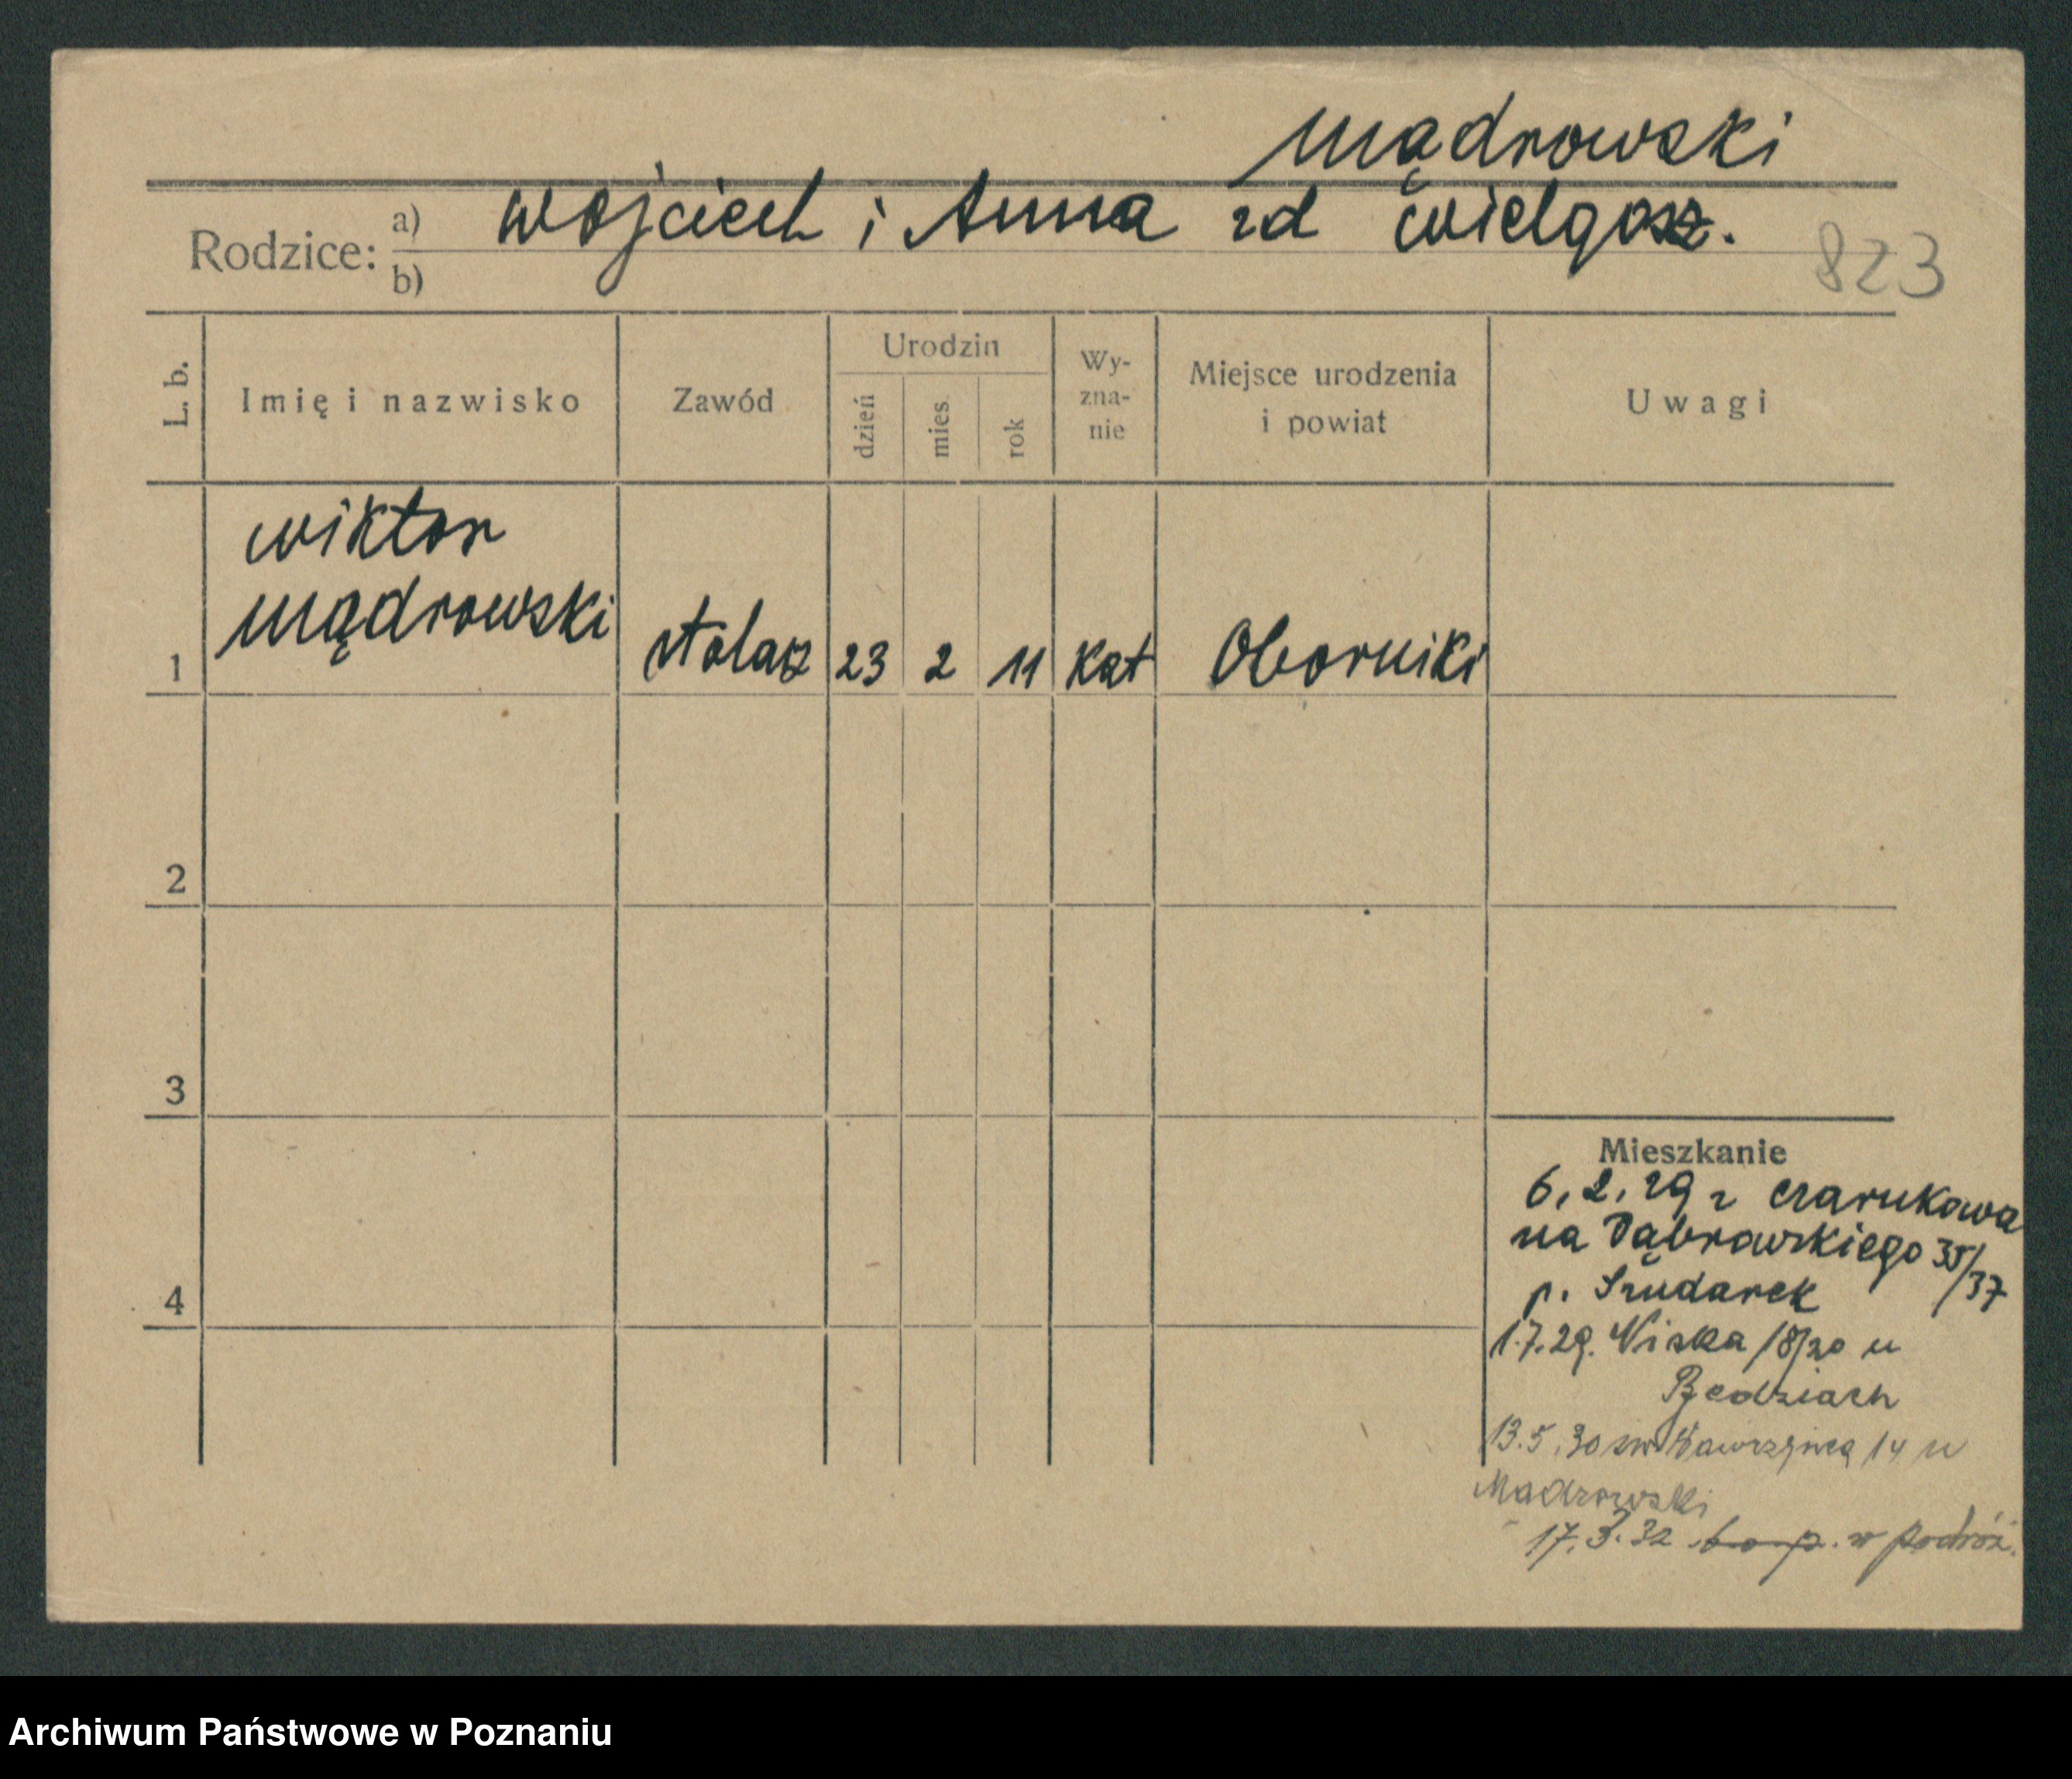 Mądrowski
Rodzice: a) Wojciech i Anna zd Wielgosz.
b)
823
L. b.
Imię i nazwisko
Zawód
Urodzin
dzień
mies.
rok
Wy-
zna-
nie
Miejsce urodzenia
i powiat
Uwagi
Wiktor
Mądrowski
1
stolarz
23
2
11
kat
Oborniki
2
3
4
Mieszkanie
6.2.29 z Czarnkowa
na Dąbrowskiego 35/
/37
p. Szudarek
1.7.29. Niska 18/20 u
13.5.30 św Wawrzyńca 14 u
Madrowski
17.3.32 w podróż.
Archiwum Państwowe w Poznaniu